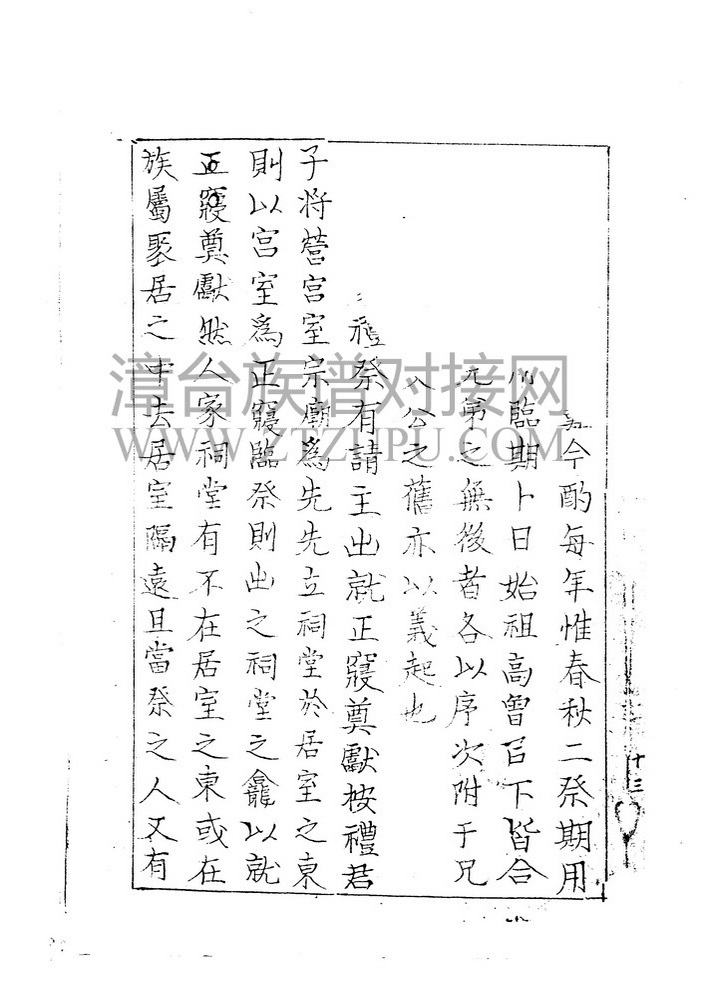 今酌每年惟春秋二祭期用
臨期卜日始祖高曾以下皆合
兄弟之無後者各以序次附于兄
公之舊亦以義起也
禮祭有請主出就正寢奠獻按禮君
子將營宮室宗廟為先先立祠堂於居室之東
則以宮室為正寢臨祭則出之祠堂之龕以就
正寢奠獻然人家祠堂有不在居室之東或在
族屬聚居之中去居室隔遠且當祭之人又有
十三
漳台族谱对接网
WWW.ZTZUPU.COM